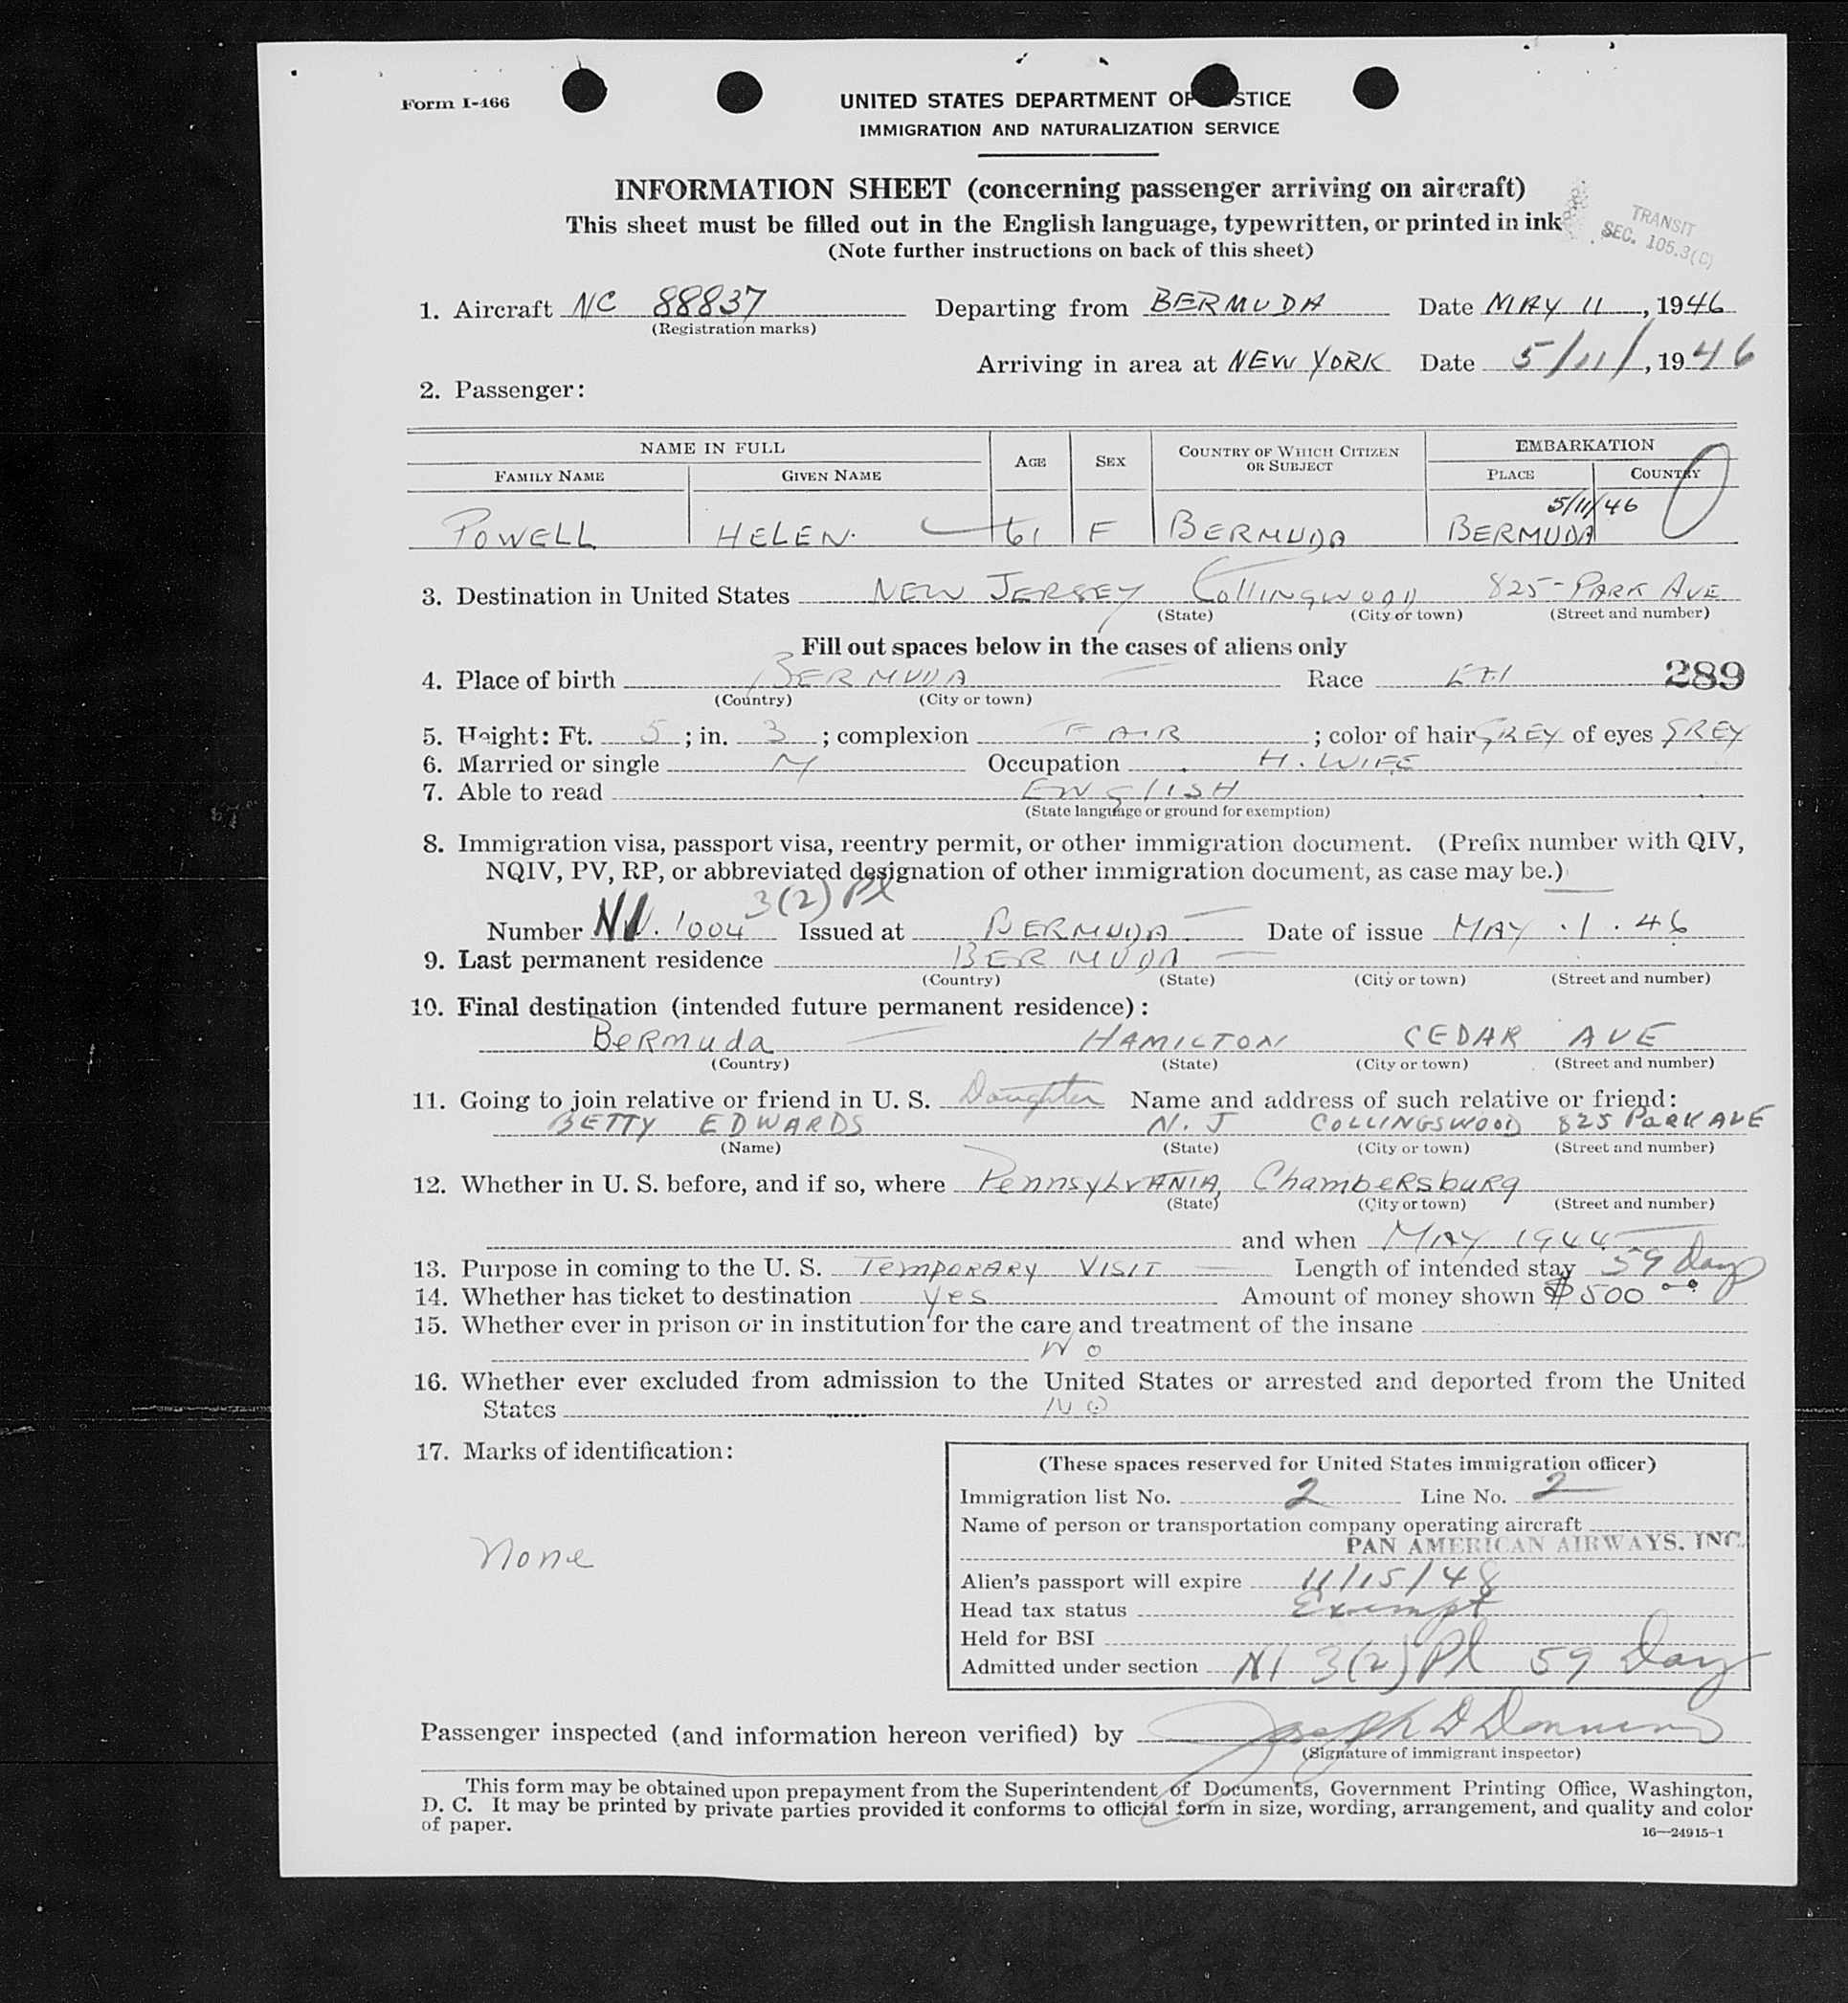 Form I-466
UNITED STATES DEPARTMENT OF JUSTICE
IMMIGRATION AND NATURALIZATION SERVICE
INFORMATION SHEET (concerning passenger arriving on aircraft)
This sheet must be filled out in the English language, typewritten, or printed in ink
(Note further instructions on back of this sheet)
TRANSIT
SEC. 105.3(C)
1. Aircraft NC 88837 Departing from BERMUDA Date MAY 11, 1946
(Registration marks)
Arriving in area at NEW YORK Date 5/11/, 1946
2. Passenger:
NAME IN FULL AGE SEX COUNTRY OF WHICH CITIZEN OR SUBJECT EMBARKATION
FAMILY NAME GIVEN NAME PLACE COUNTRY
5/11/46
POWELL HELEN. 61 F BERMUDA BERMUDA
3. Destination in United States NEW JERSEY COLLINGWOOD 825-PARK AVE
(State) (City or town) (Street and number)
Fill out spaces below in the cases of aliens only
4. Place of birth BERMUDA — Race 289
(Country) (City or town)
5. Height: Ft. 5; in. 3; complexion FAIR; color of hair GREY of eyes GREY
6. Married or single M Occupation H. WIFE
7. Able to read ENGLISH
(State language or ground for exemption)
8. Immigration visa, passport visa, reentry permit, or other immigration document. (Prefix number with QIV,
NQIV, PV, RP, or abbreviated designation of other immigration document, as case may be.)
3(2) Pl
Number NIV. 1004 Issued at BERMUDA. Date of issue MAY . 1 . 46
9. Last permanent residence BERMUDA —
(Country) (State) (City or town) (Street and number)
10. Final destination (intended future permanent residence):
BeRmuda — HAMILTON CEDAR AVE
(Country) (State) (City or town) (Street and number)
11. Going to join relative or friend in U. S. Daughter Name and address of such relative or friend:
BETTY EDWARDS N. J COLLINGSWOOD 825 PaRK AVE
(Name) (State) (City or town) (Street and number)
12. Whether in U. S. before, and if so, where PennsyLvANIA, ChambeRsbuRg
(State) (City or town) (Street and number)
and when MAY 1944
13. Purpose in coming to the U. S. TempORARY VISIT — Length of intended stay 59 days
14. Whether has ticket to destination yes Amount of money shown $500 00
15. Whether ever in prison or in institution for the care and treatment of the insane
NO
16. Whether ever excluded from admission to the United States or arrested and deported from the United
States NO
17. Marks of identification:
none
(These spaces reserved for United States immigration officer)
Immigration list No. 2 Line No. 2
Name of person or transportation company operating aircraft
PAN AMERICAN AIRWAYS, INC.
Alien's passport will expire 11/15/48
Head tax status Exempt
Held for BSI
Admitted under section NI 3(2) Pl 59 Day
Passenger inspected (and information hereon verified) by Joseph D
(Signature of immigrant inspector)
This form may be obtained upon prepayment from the Superintendent of Documents, Government Printing Office, Washington,
D. C. It may be printed by private parties provided it conforms to official form in size, wording, arrangement, and quality and color
of paper.
16—24915-1